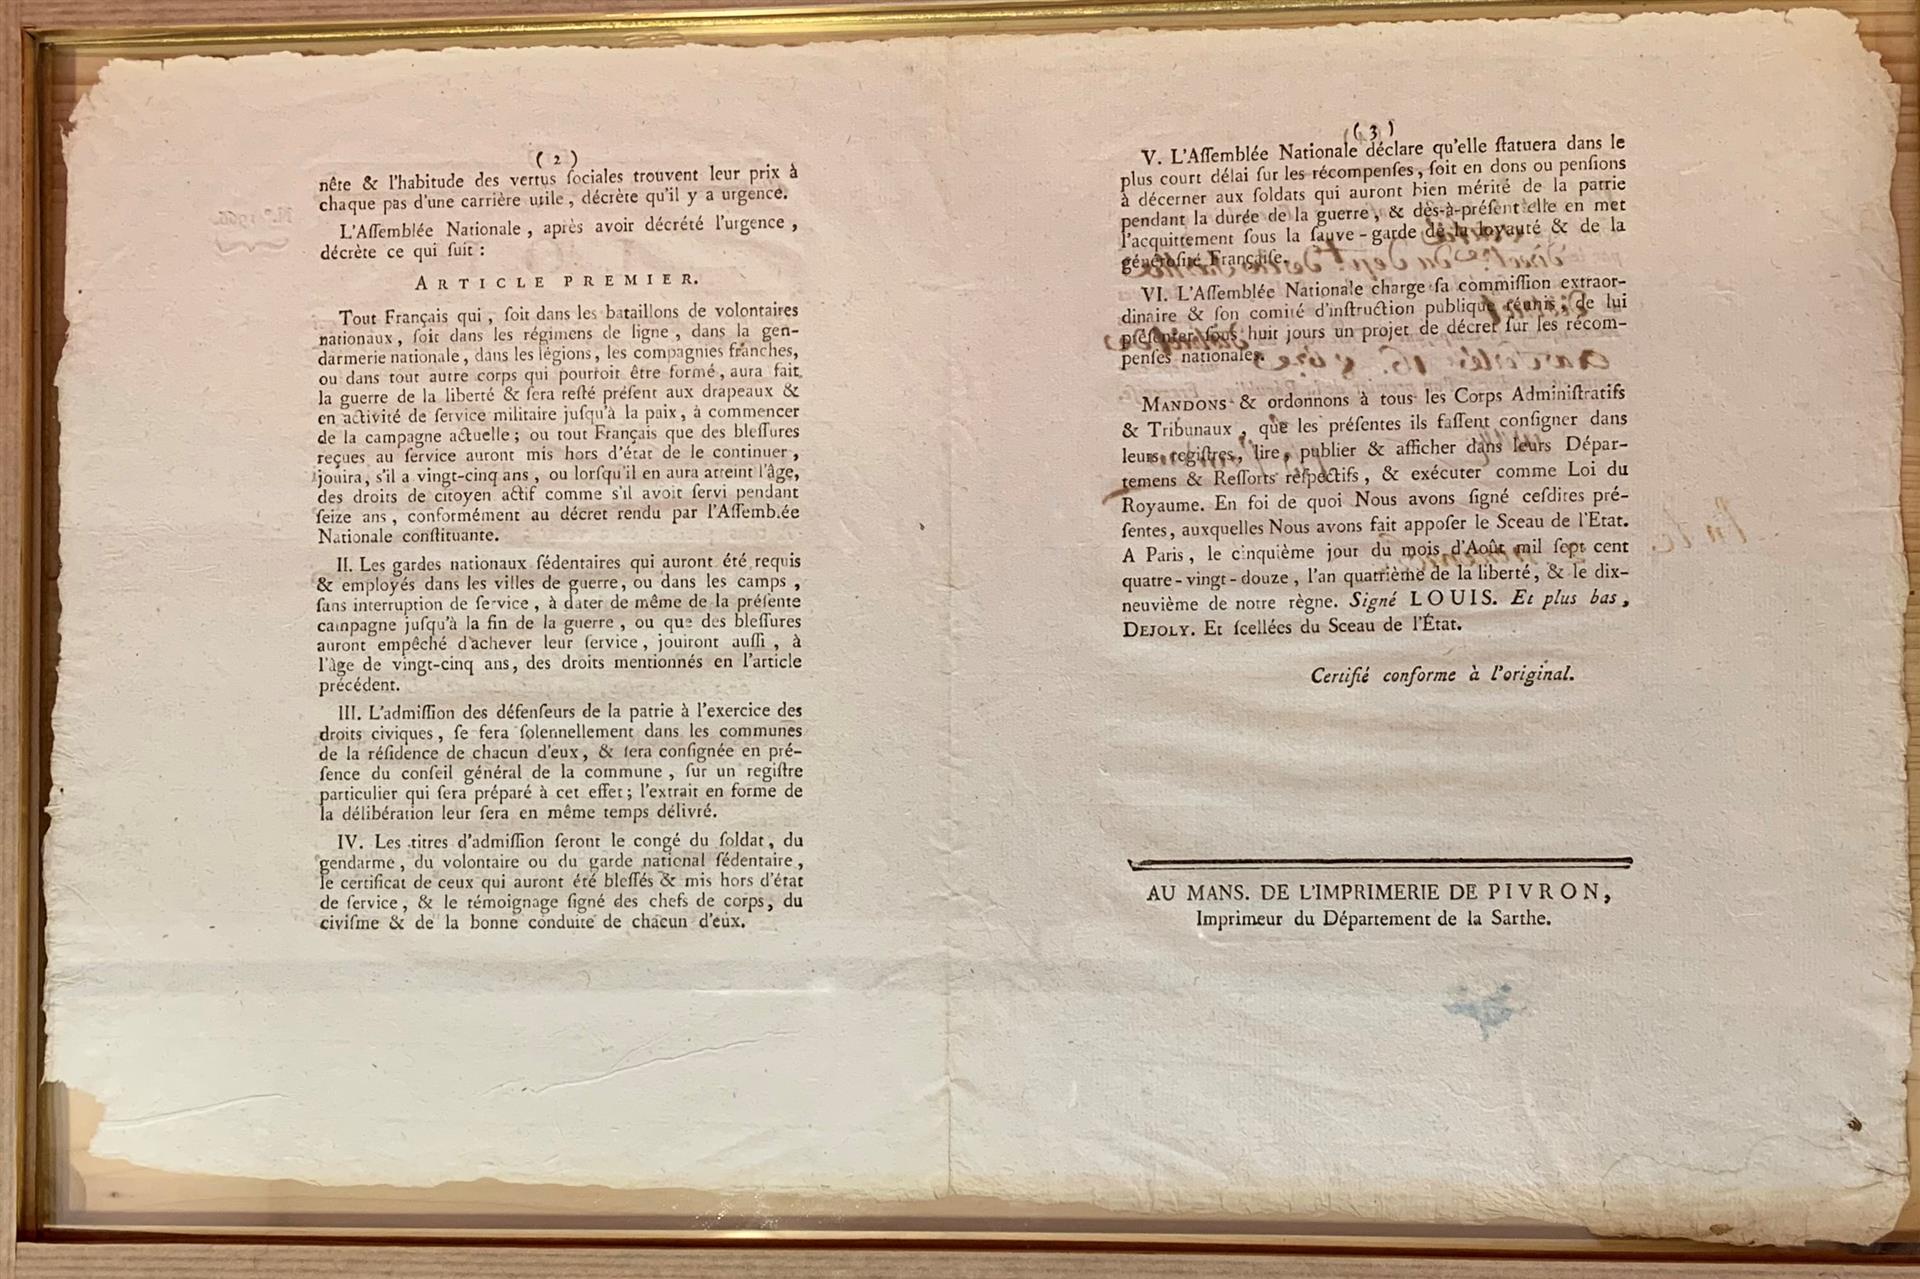 ( 2 )
nête & l'habitude des vertus ſociales trouvent leur prix à
chaque pas d'une carrière utile, décrète qu'il y a urgence.
L'Aſſemblée Nationale, après avoir décrété l'urgence,
décrète ce qui ſuit :
ARTICLE PREMIER.
Tout Français qui, ſoit dans les bataillons de volontaires
nationaux, ſoit dans les régimens de ligne, dans la gen-
darmerie nationale, dans les légions, les compagnies franches,
ou dans tout autre corps qui pourroit être formé, aura fait
la guerre de la liberté & ſera reſté préſent aux drapeaux &
en activité de ſervice militaire juſqu'à la paix, à commencer
de la campagne actuelle; ou tout Français que des bleſſures
reçues au ſervice auront mis hors d'état de le continuer,
jouira, s'il a vingt-cinq ans, ou lorſqu'il en aura atteint l'âge,
des droits de citoyen actif comme s'il avoit ſervi pendant
ſeize ans, conformément au décret rendu par l'Aſſemblée
Nationale conſtituante.
II. Les gardes nationaux ſédentaires qui auront été requis
& employés dans les villes de guerre, ou dans les camps,
ſans interruption de ſervice, à dater de même de la préſente
campagne juſqu'à la fin de la guerre, ou que des bleſſures
auront empêché d'achever leur ſervice, jouiront auſſi, à
l'âge de vingt-cinq ans, des droits mentionnés en l'article
précédent.
III. L'admiſſion des défenſeurs de la patrie à l'exercice des
droits civiques, ſe fera ſolennellement dans les communes
de la réſidence de chacun d'eux, & ſera conſignée en pré-
ſence du conſeil général de la commune, ſur un regiſtre
particulier qui ſera préparé à cet effet; l'extrait en forme de
la délibération leur ſera en même temps délivré.
IV. Les titres d'admiſſion ſeront le congé du ſoldat, du
gendarme, du volontaire ou du garde national ſédentaire,
le certificat de ceux qui auront été bleſſés & mis hors d'état
de ſervice, & le témoignage ſigné des chefs de corps, du
civiſme & de la bonne conduite de chacun d'eux.
( 3 )
V. L'Aſſemblée Nationale déclare qu'elle ſtatuera dans le
plus court délai ſur les récompenſes, ſoit en dons ou penſions
à décerner aux ſoldats qui auront bien mérité de la patrie
pendant la durée de la guerre, & dès-à-préſent elle en met
l'acquittement ſous la ſauve-garde de la loyauté & de la
généroſité Françaiſe.
VI. L'Aſſemblée Nationale charge ſa commiſſion extraor-
dinaire & ſon comité d'inſtruction publique réunis, de lui
préſenter ſous huit jours un projet de décret ſur les récom-
penſes nationales.
MANDONS & ordonnons à tous les Corps Adminiſtratifs
& Tribunaux, que les préſentes ils faſſent conſigner dans
leurs regiſtres, lire, publier & afficher dans leurs Dépar-
temens & Reſſorts reſpectifs, & exécuter comme Loi du
Royaume. En foi de quoi Nous avons ſigné ceſdites pré-
ſentes, auxquelles Nous avons fait appoſer le Sceau de l'Etat.
A Paris, le cinquième jour du mois d'Août mil ſept cent
quatre-vingt-douze, l'an quatrième de la liberté, & le dix-
neuvième de notre règne. Signé LOUIS. Et plus bas,
DEJOLY. Et ſcellées du Sceau de l'État.
Certifié conforme à l'original.
AU MANS. DE L'IMPRIMERIE DE PIVRON,
Imprimeur du Département de la Sarthe.